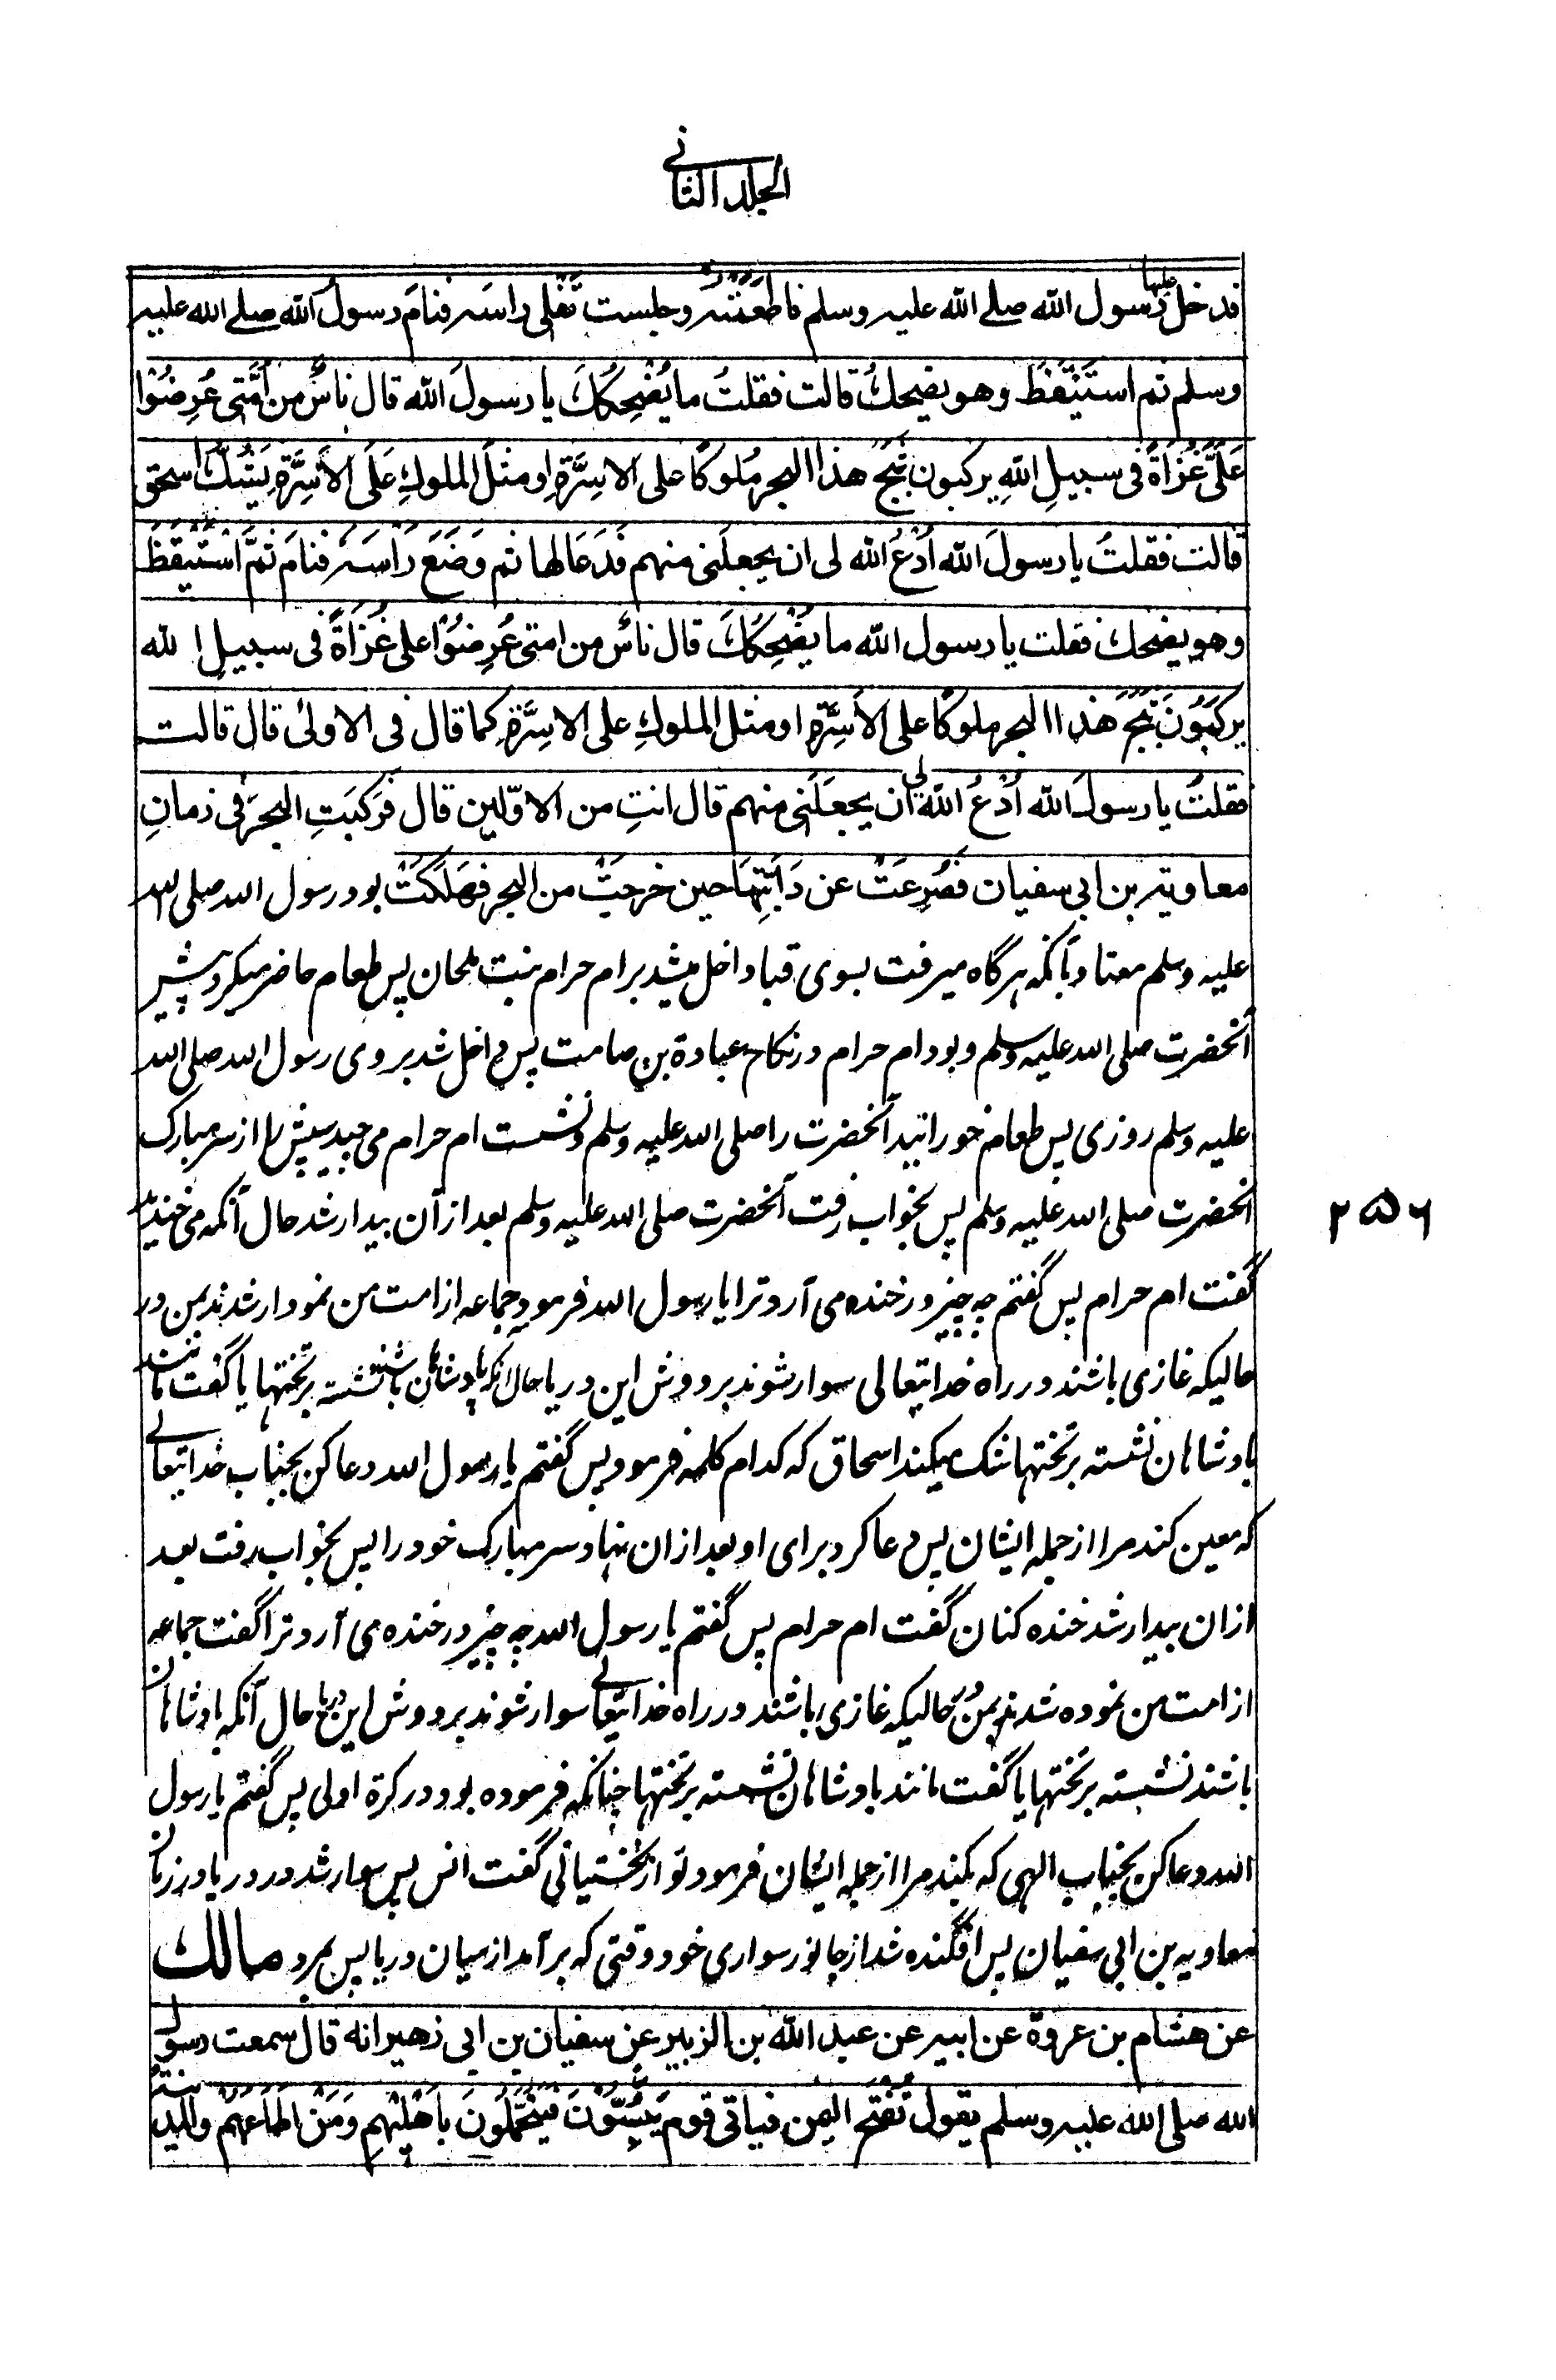 الجلد الثانی
فدخل علیها رسول الله صلے الله علیه وسلم فاطعَمَتْه وجلست تَفْلِی راسَه فنامَ رسولُ الله صلے الله علیه
وسلم ثم استَیْقَظَ وهو یضحك قالت فقلتُ ما یُضْحِكُكَ یا رسولَ الله قال ناسٌ من اُمَّتِی عُرِضُوْا
عَلَیَّ غُزَاةً فی سبیلِ اللهِ یرکبون ثَبَجَ هذا البحر مُلوکًا علی الاَسِرَّةِ او مثلَ الملوكِ عَلَی الاَسِرَّةِ یَشُكُّ اسحق
قالت فقلتُ یا رسولَ الله اُدْعُ الله لی ان یجعلَنی منهم فَدَعَا لها ثم وَضَعَ رَاْسَه فنامَ ثمَّ اسْتَیْقَظَ
وهو یضحك فقلت یا رسول الله ما یُضْحِكُكَ قال ناسٌ من امتی عُرِضُوْا علی غُزَاةً فی سبیلِ الله
یرکَبُوْنَ ثَبَجَ هذا البحر ملوکًا علی الاَسِرَّةِ او مثل الملوكِ علی الاسِرَّةِ کما قال فی الاولیٰ قال قالت
فقلتُ یا رسولَ الله اُدْعُ الله لی ان یجعَلَنی منهم قال انتِ من الاوّلین قال فَرَکِبَتِ البحرَ فی زمانِ
معاویة بن ابی سفیان فَصُرِعَتْ عن دَابَّتِهَا حین خرجَتْ من البحر فهَلَكَتْ بود رسول الله صلی الله
علیه وسلم معتاد بآنکه هرگاه میرفت بسوی قبا داخل میشد بر ام حرام بنت ملحان پس طعام حاضر میکرد پیش
آنحضرت صلی الله علیه وسلم و بود ام حرام در نکاح عبادة بن صامت پس داخل شد بروی رسول الله صلی الله
علیه وسلم روزی پس طعام خورانید آنحضرت را صلی الله علیه وسلم ونشست ام حرام می جید سپش را از سر مبارک
آنحضرت صلی الله علیه وسلم پس بخواب رفت آنحضرت صلی الله علیه وسلم بعد از آن بیدار شد حال آنکه می خندید
گفت ام حرام پس گفتم چه چیز در خنده می آرد ترا یا رسول الله فرمود جماعه از امت من نمودار شدند بمن در
حالیکه غازی باشند در راه خدایتعالی سوار شوند بر دوش این دریا حال آنکه بادشاهان باشند نشسته بر تختها یا گفت مانند
بادشاهان نشسته بر تختها شک میکند اسحاق که کدام کلمه فرمود پس گفتم یا رسول الله دعا کن بجناب خدایتعالی
که معین کند مرا از جمله ایشان پس دعا کرد برای او بعد از ان نهاد سر مبارک خود را پس بخواب رفت بعد
ازان بیدار شد خنده کنان گفت ام حرام پس گفتم یا رسول الله چه چیز در خنده می آرد ترا گفت جماعه
از امت من نموده شدند بمن حالیکه غازی باشند در راه خدایتعالی سوار شوند بر دوش این دریا حال آنکه بادشاهان
باشند نشسته بر تختها یا گفت مانند بادشاهان نشسته بر تختها چنانکه فرموده بود در کرة اولی پس گفتم یا رسول
الله دعا کن بجناب الهی که بکند مرا از جمله ایشان فرمود تو از نخستیانی گفت انس پس سوار شد در دریا در زمان
معاویه بن ابی سفیان پس افگنده شد از جانور سواری خود وقتی که برآمد از میان دریا پس بمرد مالك
عن هشام بن عروة عن ابیه عن عبد الله بن الزبیر عن سفیان بن ابی زهیر انه قال سمعت رسول
الله صلی الله علیه وسلم یقول تُفْتَحُ الیمن فیاتی قوم یَبُسُّوْنَ فیَتَحَمَّلُوْنَ بِاَهْلِیْهِم وَمَنْ اَطَاعَهُمْ والمدینةُ
۲۵۶